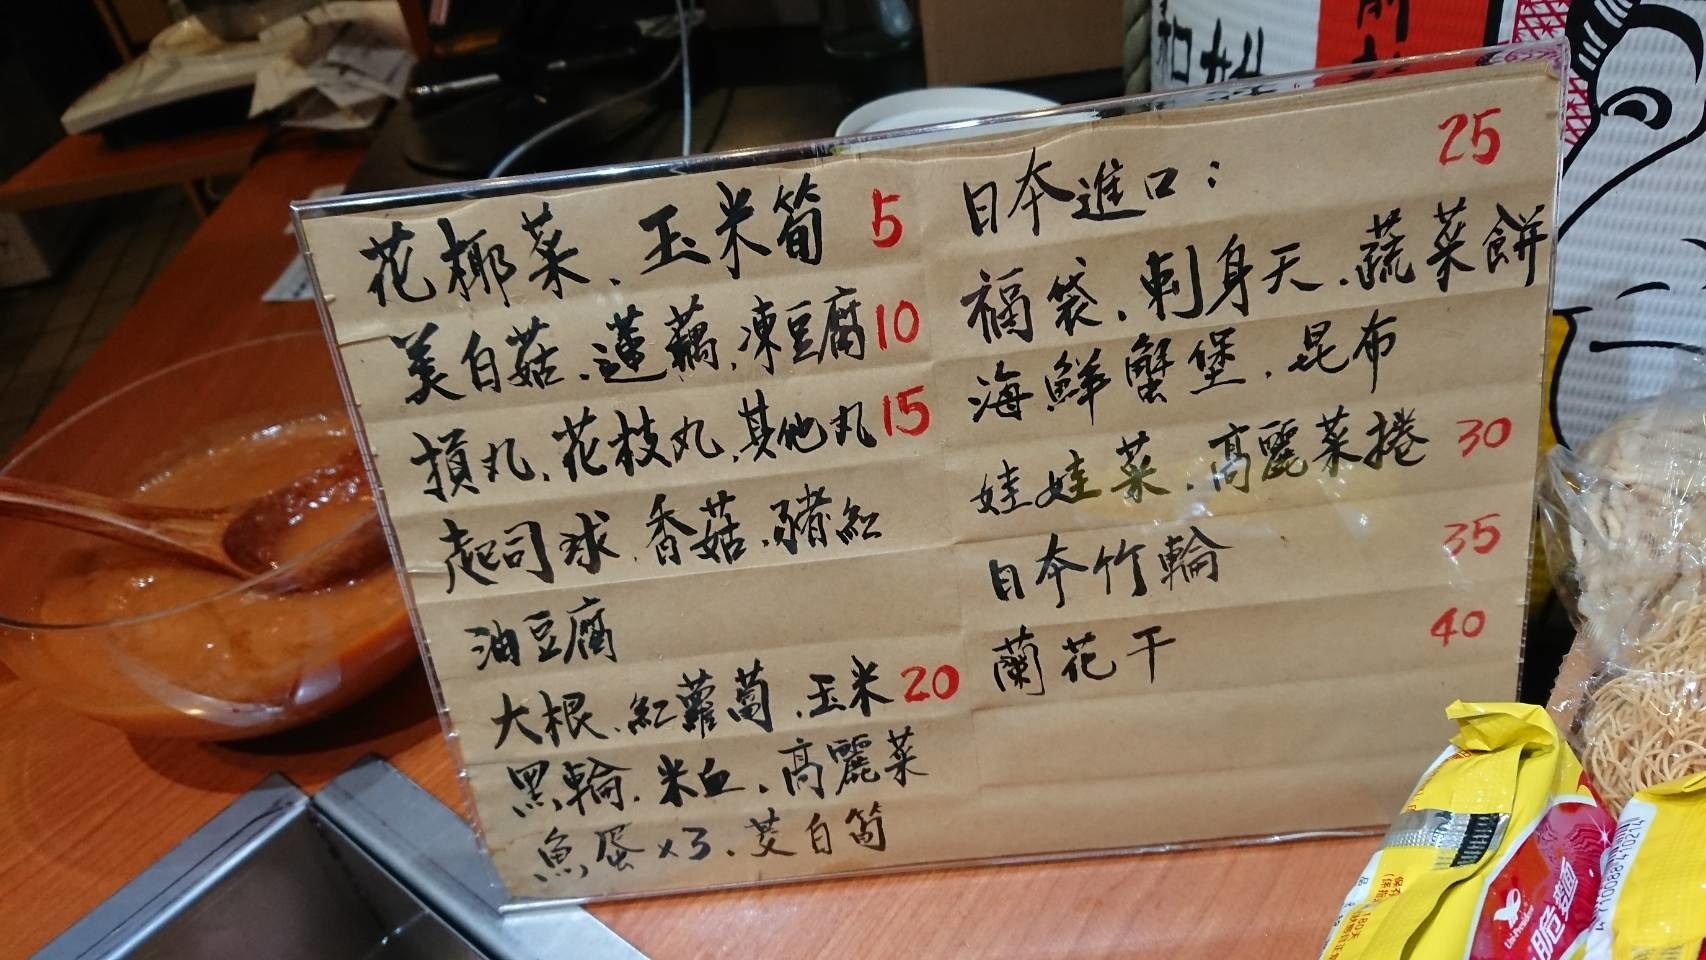 花椰菜、玉米筍 5
美白菇、蓮藕、凍豆腐 10
損丸、花枝丸、其他丸 15
起司球、香菇、豬紅
油豆腐
大根、紅蘿蔔、玉米 20
黑輪、米血、高麗菜
魚蛋x3、茭白筍
日本進口： 25
福袋、刺身天、蔬菜餅
海鮮蟹堡、昆布
娃娃菜、高麗菜捲 30
日本竹輪 35
蘭花干 40
脆麵
Uni-President